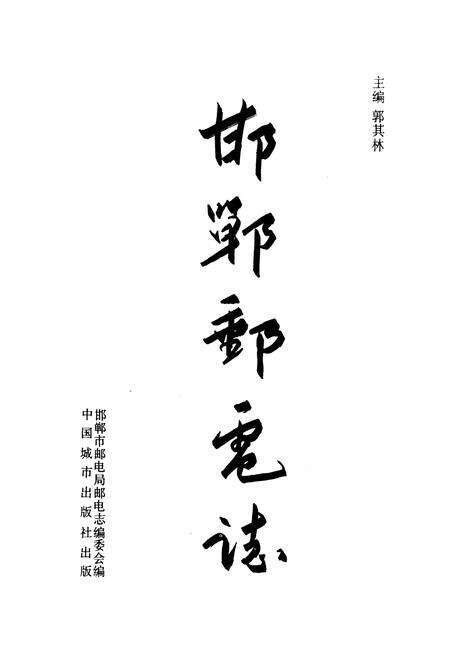 主编 郭其林
邯鄲郵電誌
邯郸市邮电局邮电志编委会编
中国城市出版社出版